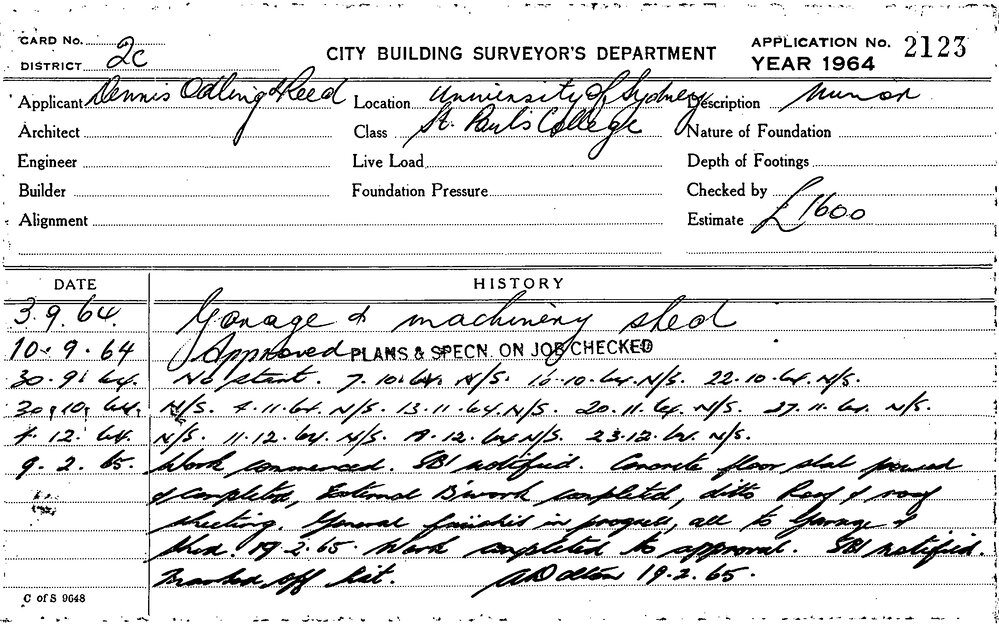 CARD No.
DISTRICT 2C
CITY BUILDING SURVEYOR'S DEPARTMENT
APPLICATION No. 2123
YEAR 1964
Applicant Dennis Odling & Reed Location University of Sydney Description Minor
Architect Class St. Paul's College Nature of Foundation
Engineer Live Load Depth of Footings
Builder Foundation Pressure Checked by
Alignment Estimate £1600
DATE HISTORY
3.9.64. Garage & machinery shed
10.9.64 Approved PLANS & SPECN. ON JOB CHECKED
30.9.64. No start. 7.10.64. N/S. 16.10.64. N/S. 22.10.64. N/S.
30.10.64. N/S. 4.11.64. N/S. 13.11.64. N/S. 20.11.64. N/S. 27.11.64. N/S.
4.12.64. N/S. 11.12.64. N/S. 19.12.64 N/S. 23.12.64. N/S.
9.2.65. Work commenced. SBI notified. Concrete floor slab poured
& completed, External B'work completed, ditto Roof & roof
sheeting. General finishes in progress, all to Garage &
shed. 19.2.65. Work completed to approval. SBI notified.
Marked off list. 19.2.65.
C of S 9648